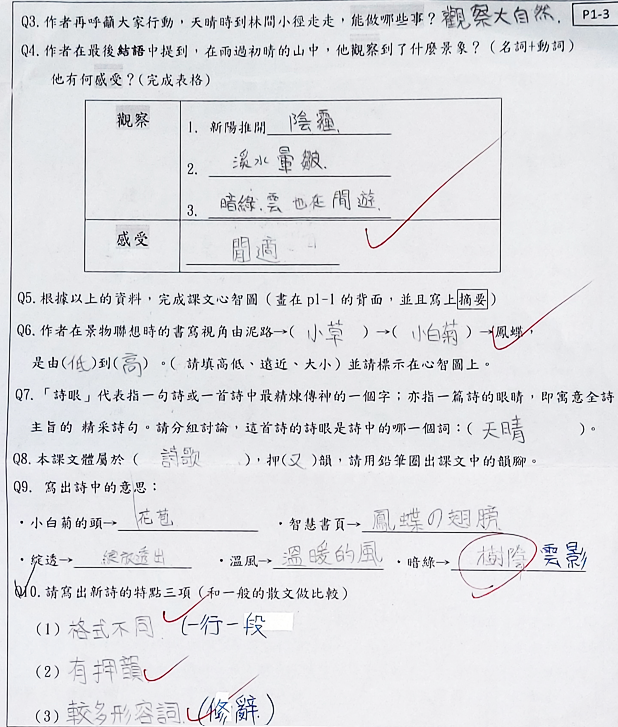 Q3.作者再呼籲大家行動，天晴時到林間小徑走走，能做哪些事？觀察大自然.
P1-3
Q4.作者在最後結語中提到，在雨過初晴的山中，他觀察到了什麼景象？（名詞+動詞）
他有何感受？(完成表格)
觀察
1. 新陽推開陰霾.
2. 溪水暈皺.
3. 暗綠.雲也在閒遊.
感受
閒適
Q5.根據以上的資料，完成課文心智圖（畫在 p1-1 的背面，並且寫上摘要）
Q6.作者在景物聯想時的書寫視角由泥路→( 小草 ) →( 小白菊 ) →鳳蝶，
是由(低)到(高) 。( 請填高低、遠近、大小）並請標示在心智圖上。
Q7.「詩眼」代表指一句詩或一首詩中最精煉傳神的一個字；亦指一篇詩的眼晴，即寓意全詩
主旨的 精采詩句。請分組討論，這首詩的詩眼是詩中的哪一個詞：( 天晴 )。
Q8.本課文體屬於（ 詩歌 ），押(ㄡ)韻，請用鉛筆圈出課文中的韻腳。
Q9. 寫出詩中的意思：
·小白菊的頭→花苞 ·智慧書頁→鳳蝶の翅膀
·綻透→綻放透出 ·溫風→溫暖的風 ·暗綠→樹陰 雲影
Q10.請寫出新詩的特點三項（和一般的散文做比較）
(1) 格式不同 (一行一段
(2) 有押韻
(3) 較多形容詞.(修辭.)